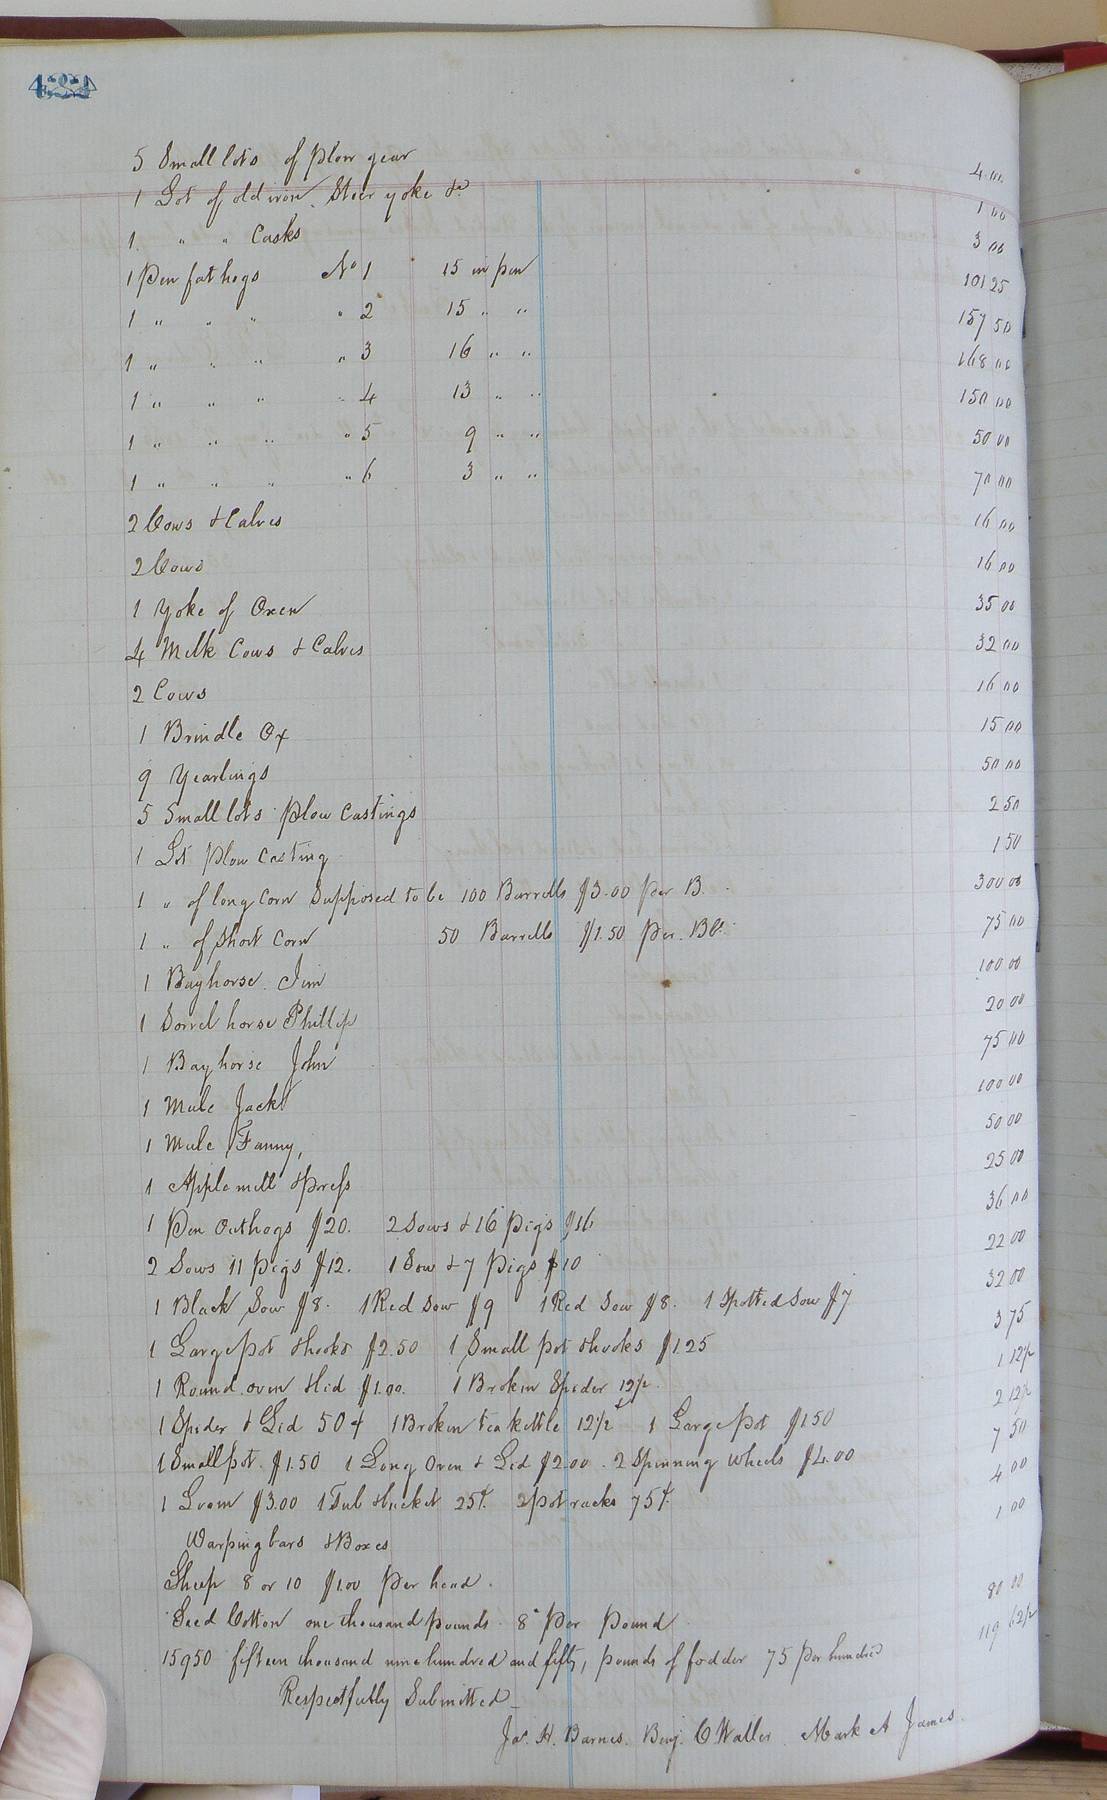 424
5 Small lots of plow gear 4.00
1 Lot of old iron, Steer yoke &c 1 00
1 " " Casks 3 00
1 Pen fat hogs No 1 15 in pen 101 25
1 " " " " 2 15 " " 157 50
1 " " " " 3 16 " " 168 00
1 " " " " 4 13 " " 150 00
1 " " " " 5 9 " " 50 00
1 " " " " 6 3 " " 70 00
2 Cows & Calves 16 00
2 Cows 16 00
1 Yoke of Oxen 35 00
4 Milk Cows & Calves 32 00
2 Cows 16 00
1 Brindle Ox 15 00
9 Yearlings 50 00
5 Small lots plow Castings 2 50
1 Lot plow Casting 1 50
1 " of long Corn Supposed to be 100 Barrells $3.00 per B. 300 00
1 " of Short Corn 50 Barrells $1.50 Per. Bl. 75 00
1 Bay horse Jim 100 00
1 Sorrel horse Phillip 20 00
1 Bay horse John 75 00
1 Mule Jack 100 00
1 Mule Fanny, 50 00
1 Apple mill & press 25 00
1 Pen Outhogs $20. 2 Sows & 16 Pigs $16 36 00
2 Sows 11 pigs $12. 1 Sow & 7 Pigs $10 22 00
1 Black Sow $8. 1 Red Sow $9 1 Red Sow $8. 1 Spotted Sow $7 32 00
1 Large pot & hooks $2.50 1 Small pot & hooks $1.25 3 75
1 Round oven & lid $1.00. 1 Broken Spider 12½ 1 12½
1 Spider & Lid 50¢ 1 Broken tea kettle 12½ 1 Large Pot $1.50 2 12½
1 Small pot $1.50 1 Long Oven & Lid $2.00. 2 Spinning Wheels $4.00 7 50
1 Loom $3.00 1 Tub & bucket 25¢ 2 pot racks 75¢. 4 00
Warping bars & Boxes 1 00
Sheep 8 or 10 $1.00 Per head.
Seed Cotton one thousand pounds 8 Per Pound 80 00
15950 fifteen thousand nine hundred and fifty, pounds of fodder 75 per hundred 119 62½
Respectfully Submitted
Jas. H. Barnes. Benj. C Waller. Mark A James.